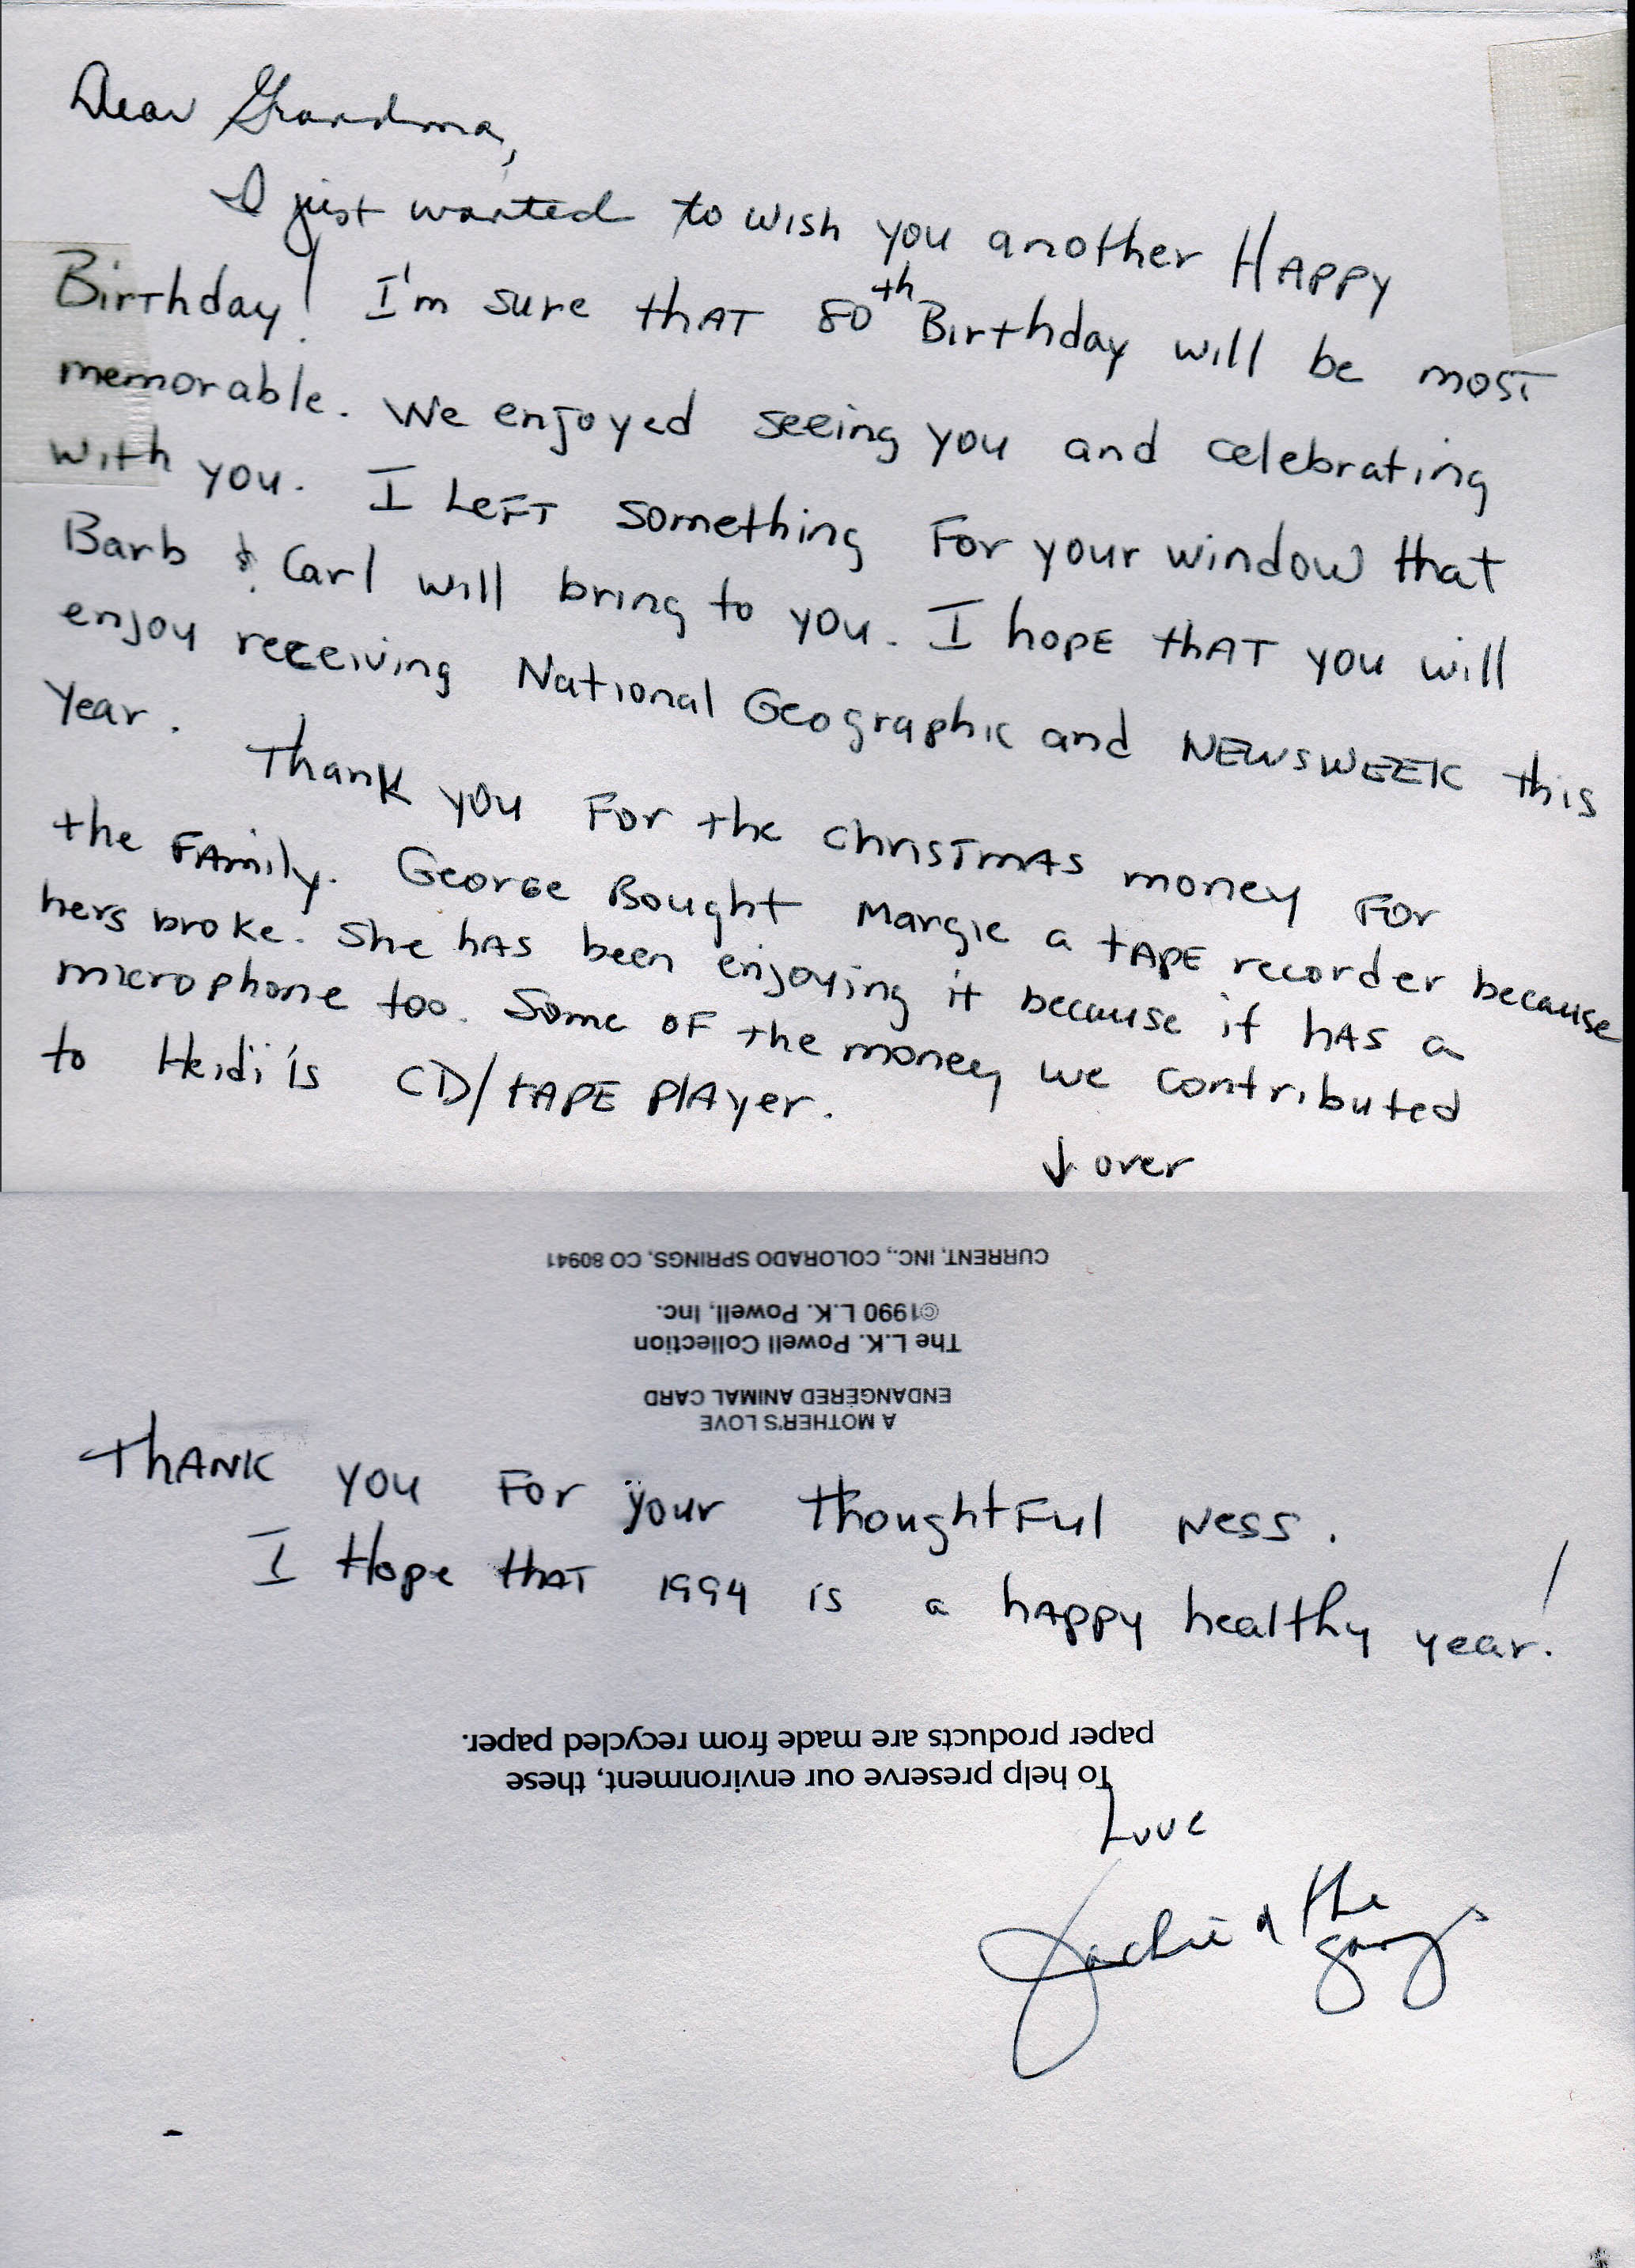 Dear Grandma,
I just wanted to wish you another HAPPY
Birthday! I'm sure that 80th Birthday will be most
memorable. We enjoyed seeing you and celebrating
with you. I Left something For your window that
Barb & Carl will bring to you. I hope that you will
enjoy receiving National Geographic and NEWSWEEK this
year.
Thank you For the christmas money For
the Family. George Bought Margie a tape recorder because
hers broke. She has been enjoying it because it has a
microphone too. Some of the money we contributed
to Heidi's CD/tape player.
↓ over
CURRENT, INC., COLORADO SPRINGS, CO 80941
©1990 L.K. Powell, Inc.
The L.K. Powell Collection
ENDANGERED ANIMAL CARD
A MOTHER'S LOVE
Thank you For your thoughtFul ness.
I Hope that 1994 is a happy healthy year!
paper products are made from recycled paper.
To help preserve our environment, these
Love
Jackie & the
gang